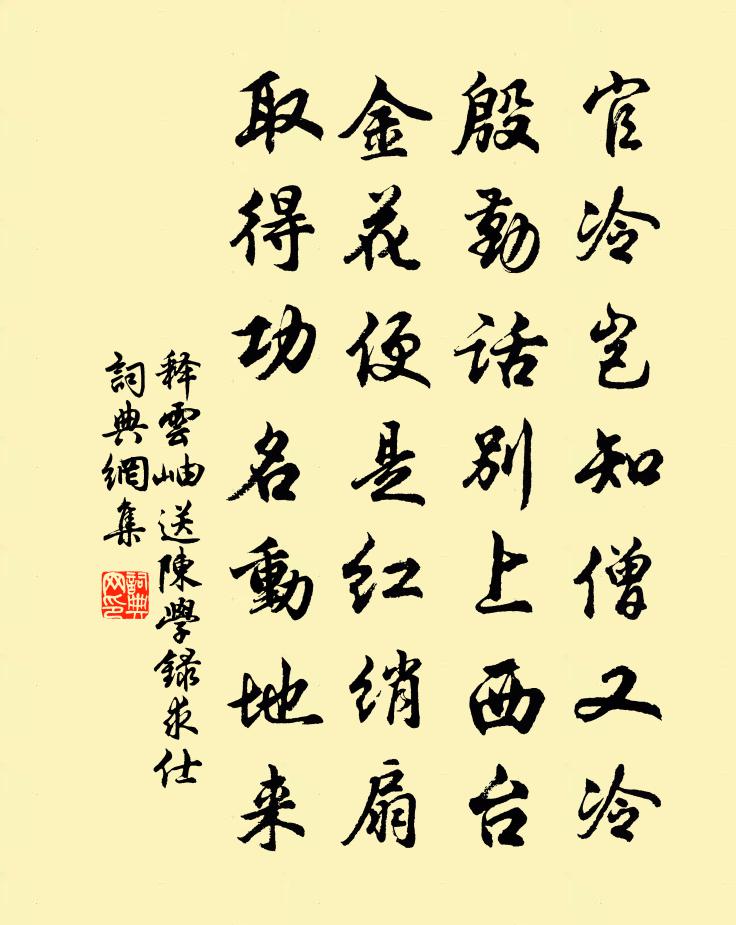 官冷岂知僧又冷
殷勤话别上西台
金花便是红绡扇
取得功名動地来
释雲岫送陳學録求仕
詞典網集
詞典
网印